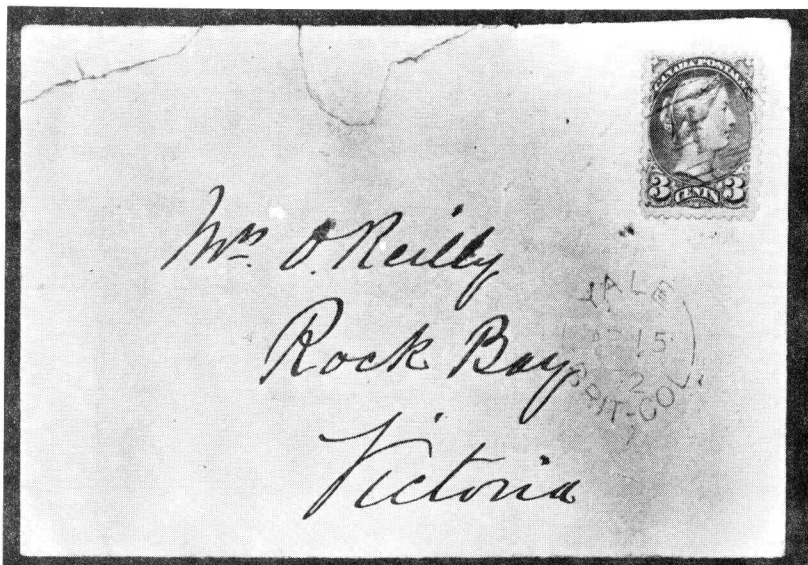 CANADA POSTAGE
3 CENTS 3
Mrs. O'Reilly
Rock Bay
Victoria
YALE
15
72
BRIT-COL.